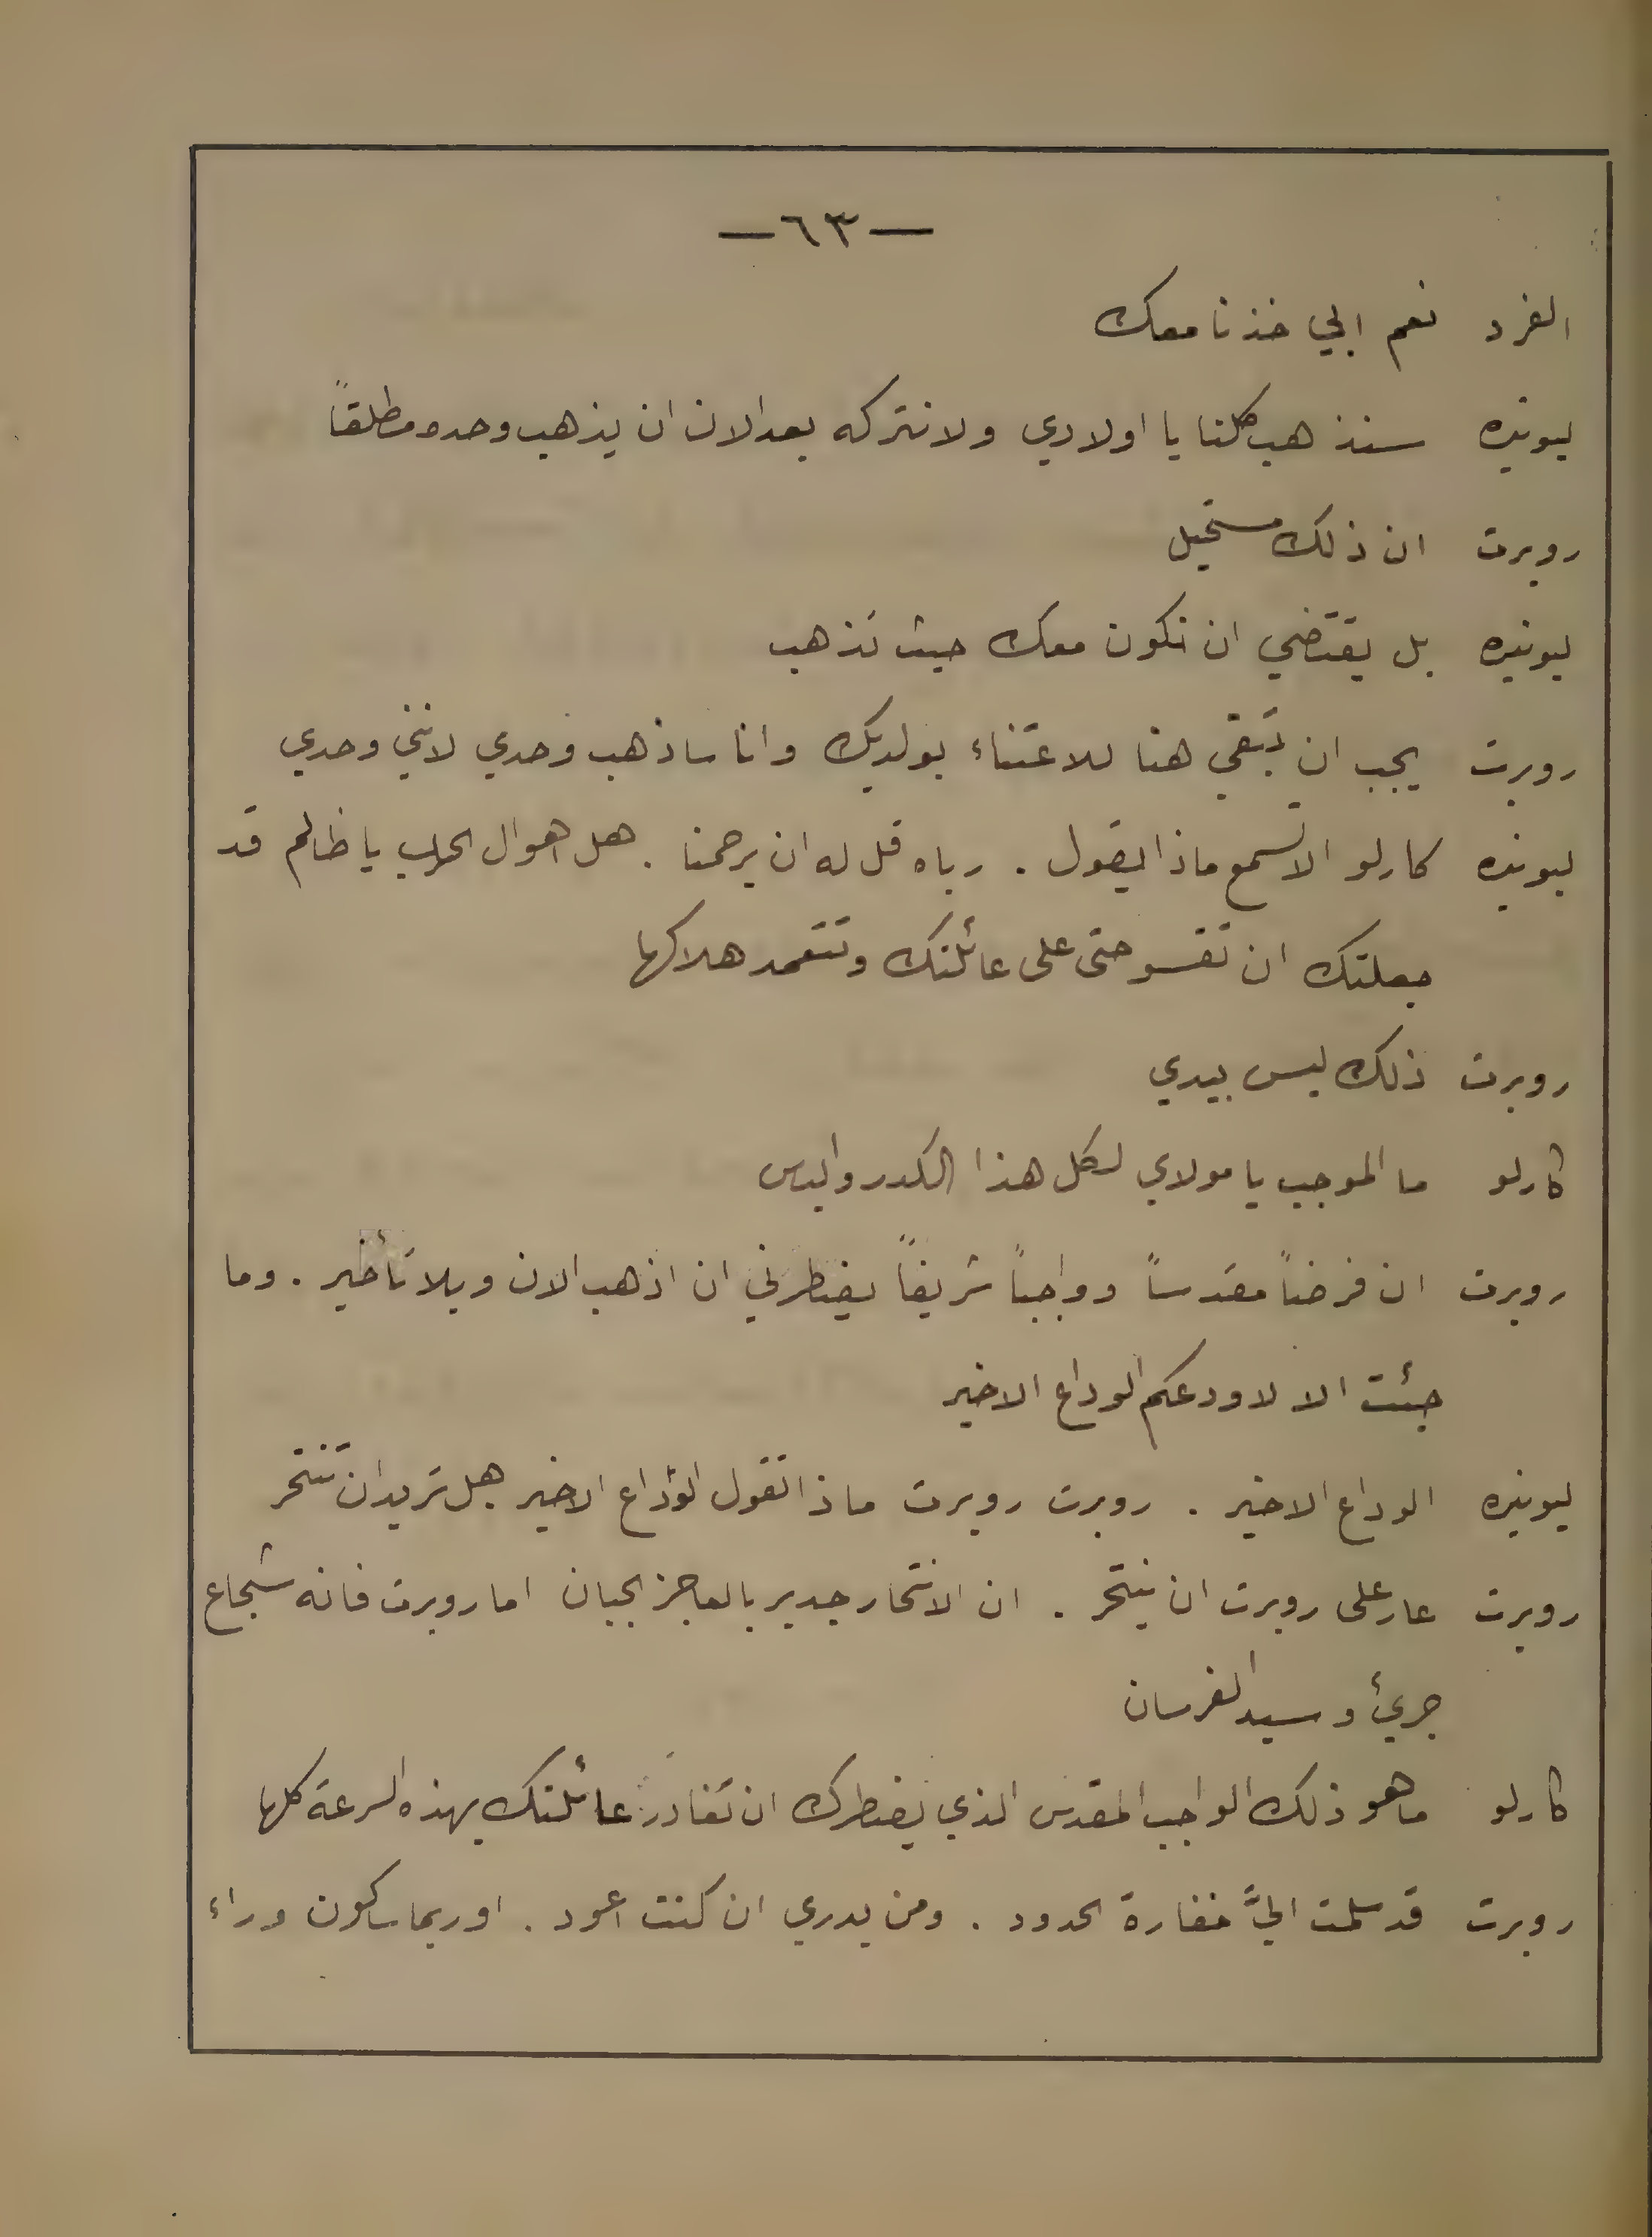 —٦٣—
الفرد نعم ابي خذنا معك
ليونيره سنذهب كلنا يا اولادي ولا نتركه بعد الان ان يذهب وحده مطلقاً
روبرت ان ذلك مستحيل
ليونيره بل يقتضي ان نكون معك حيث تذهب
روبرت يجب ان تبقي هنا للاعتناء بولديك وانا ساذهب وحدي لانني وحدي
ليونيره كارلو الا تسمع ماذا يقول . رباه قل له ان يرحمنا . هل اهوال الحرب يا ظالم قد
جعلتك ان تقسو حتى على عائلتك وتتعمد هلاكها
روبرت ذلك ليس بيدي
كارلو ما الموجب يا مولاي لكل هذا الكدر واليأس
روبرت ان فرضاً مقدساً وواجباً شريفاً يضطرني ان اذهب الان وبلا تأخير . وما
جئت الا لاودعكم الوداع الاخير
ليونيره الوداع الاخير . روبرت روبرت ماذا تقول الوداع الاخير هل تريد ان تنتحر
روبرت عار على روبرت ان ينتحر . ان الانتحار جدير بالعاجز الجبان اما روبرت فانه شجاع
جريئ وسيد الفرسان
كارلو ما هو ذلك الواجب المقدس الذي يضطرك ان تغادر عائلتك بهذه السرعة كلها
روبرت قد سلمت اليَّ خفارة الحدود . ومن يدري ان كنت اعود . او ربما ساكون وراء